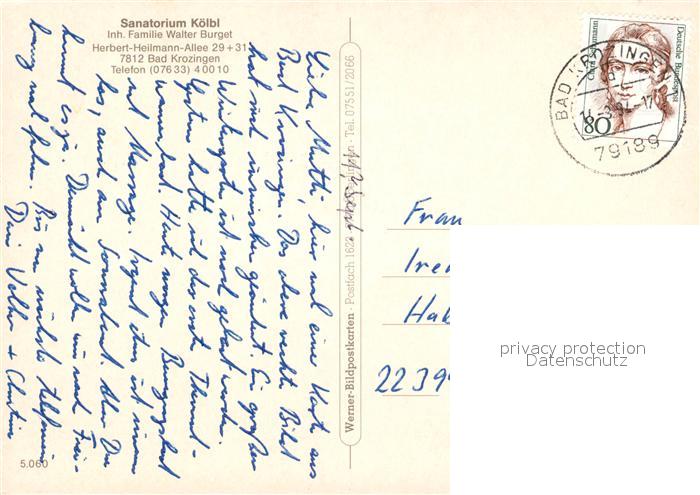 Sanatorium Kölbl
Inh. Familie Walter Burget
Herbert-Heilmann-Allee 29+31
7812 Bad Krozingen
Telefon (07633) 40010
Liebe Mutti, hier mal eine Karte aus
Bad Krozingen. Das obere rechte Bild
hat sich inzwischen geändert. Ein großer
Wintergarten ist noch gebaut worden.
Gestern hatte ich das erste Thermal-
wannenbad. Heute morgen Bewegungsbad
mit Massage. Irgend etwas ist immer
los, auch am Sonnabend. Aber Du
kennst es ja. Demnächst wollen wir nach Frei-
burg mal fahren. Bis zum nächsten
Dein Volker + Christine
5.060
Werner-Bildpostkarten · Postfach 1622 · Tel. 07551/2066
Deutsche Bundespost
Clara Schumann
80
BAD KROZINGEN
79189
Frau
Hab
2239
privacy protection
Datenschutz